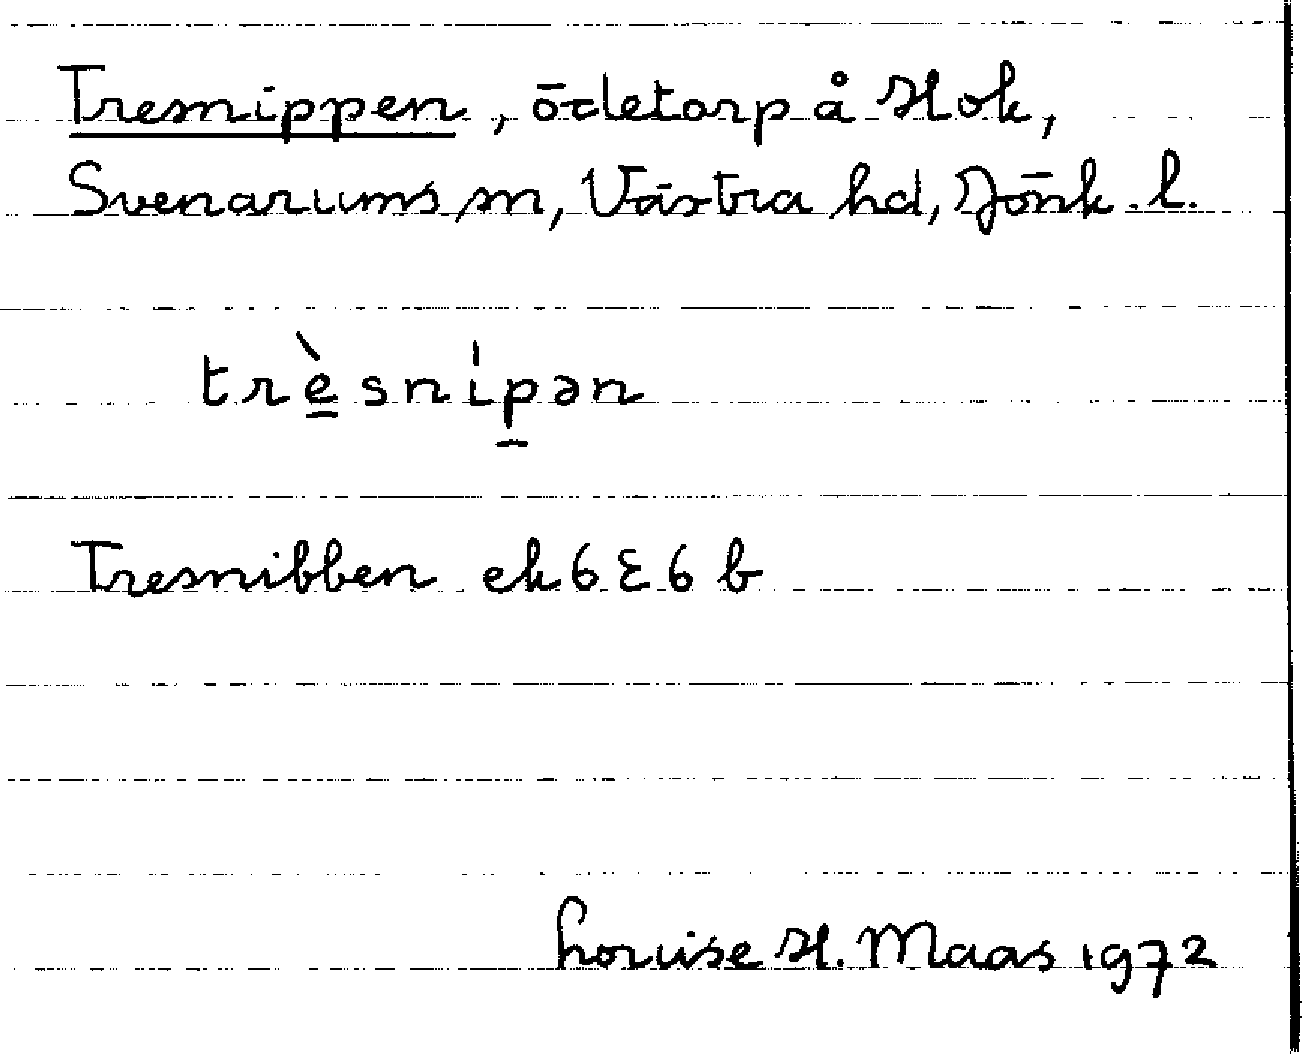 Tresnippen, ödetorp å Hok,
Svenarums sn, Västra hd, Jönk. l.
trèsnípən
Tresnibben ek 6 E 6 b
Louise H. Maas 1972